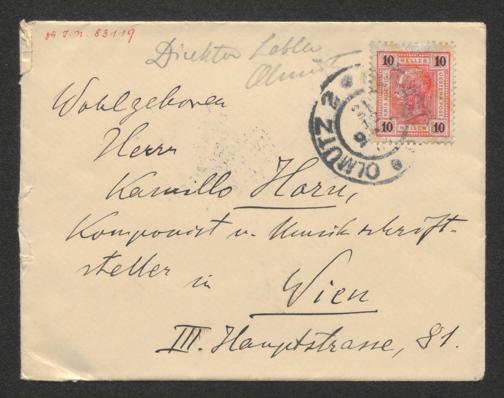 I.N. 83119
Direktor Labler
Olmütz
10 HELLER 10
10 10
OLMÜTZ 2
Wohlgeboren
Herrn
Kamillo Horn,
Komponist u. Musikschrift-
steller in
Wien
III. Hauptstrasse, 81.